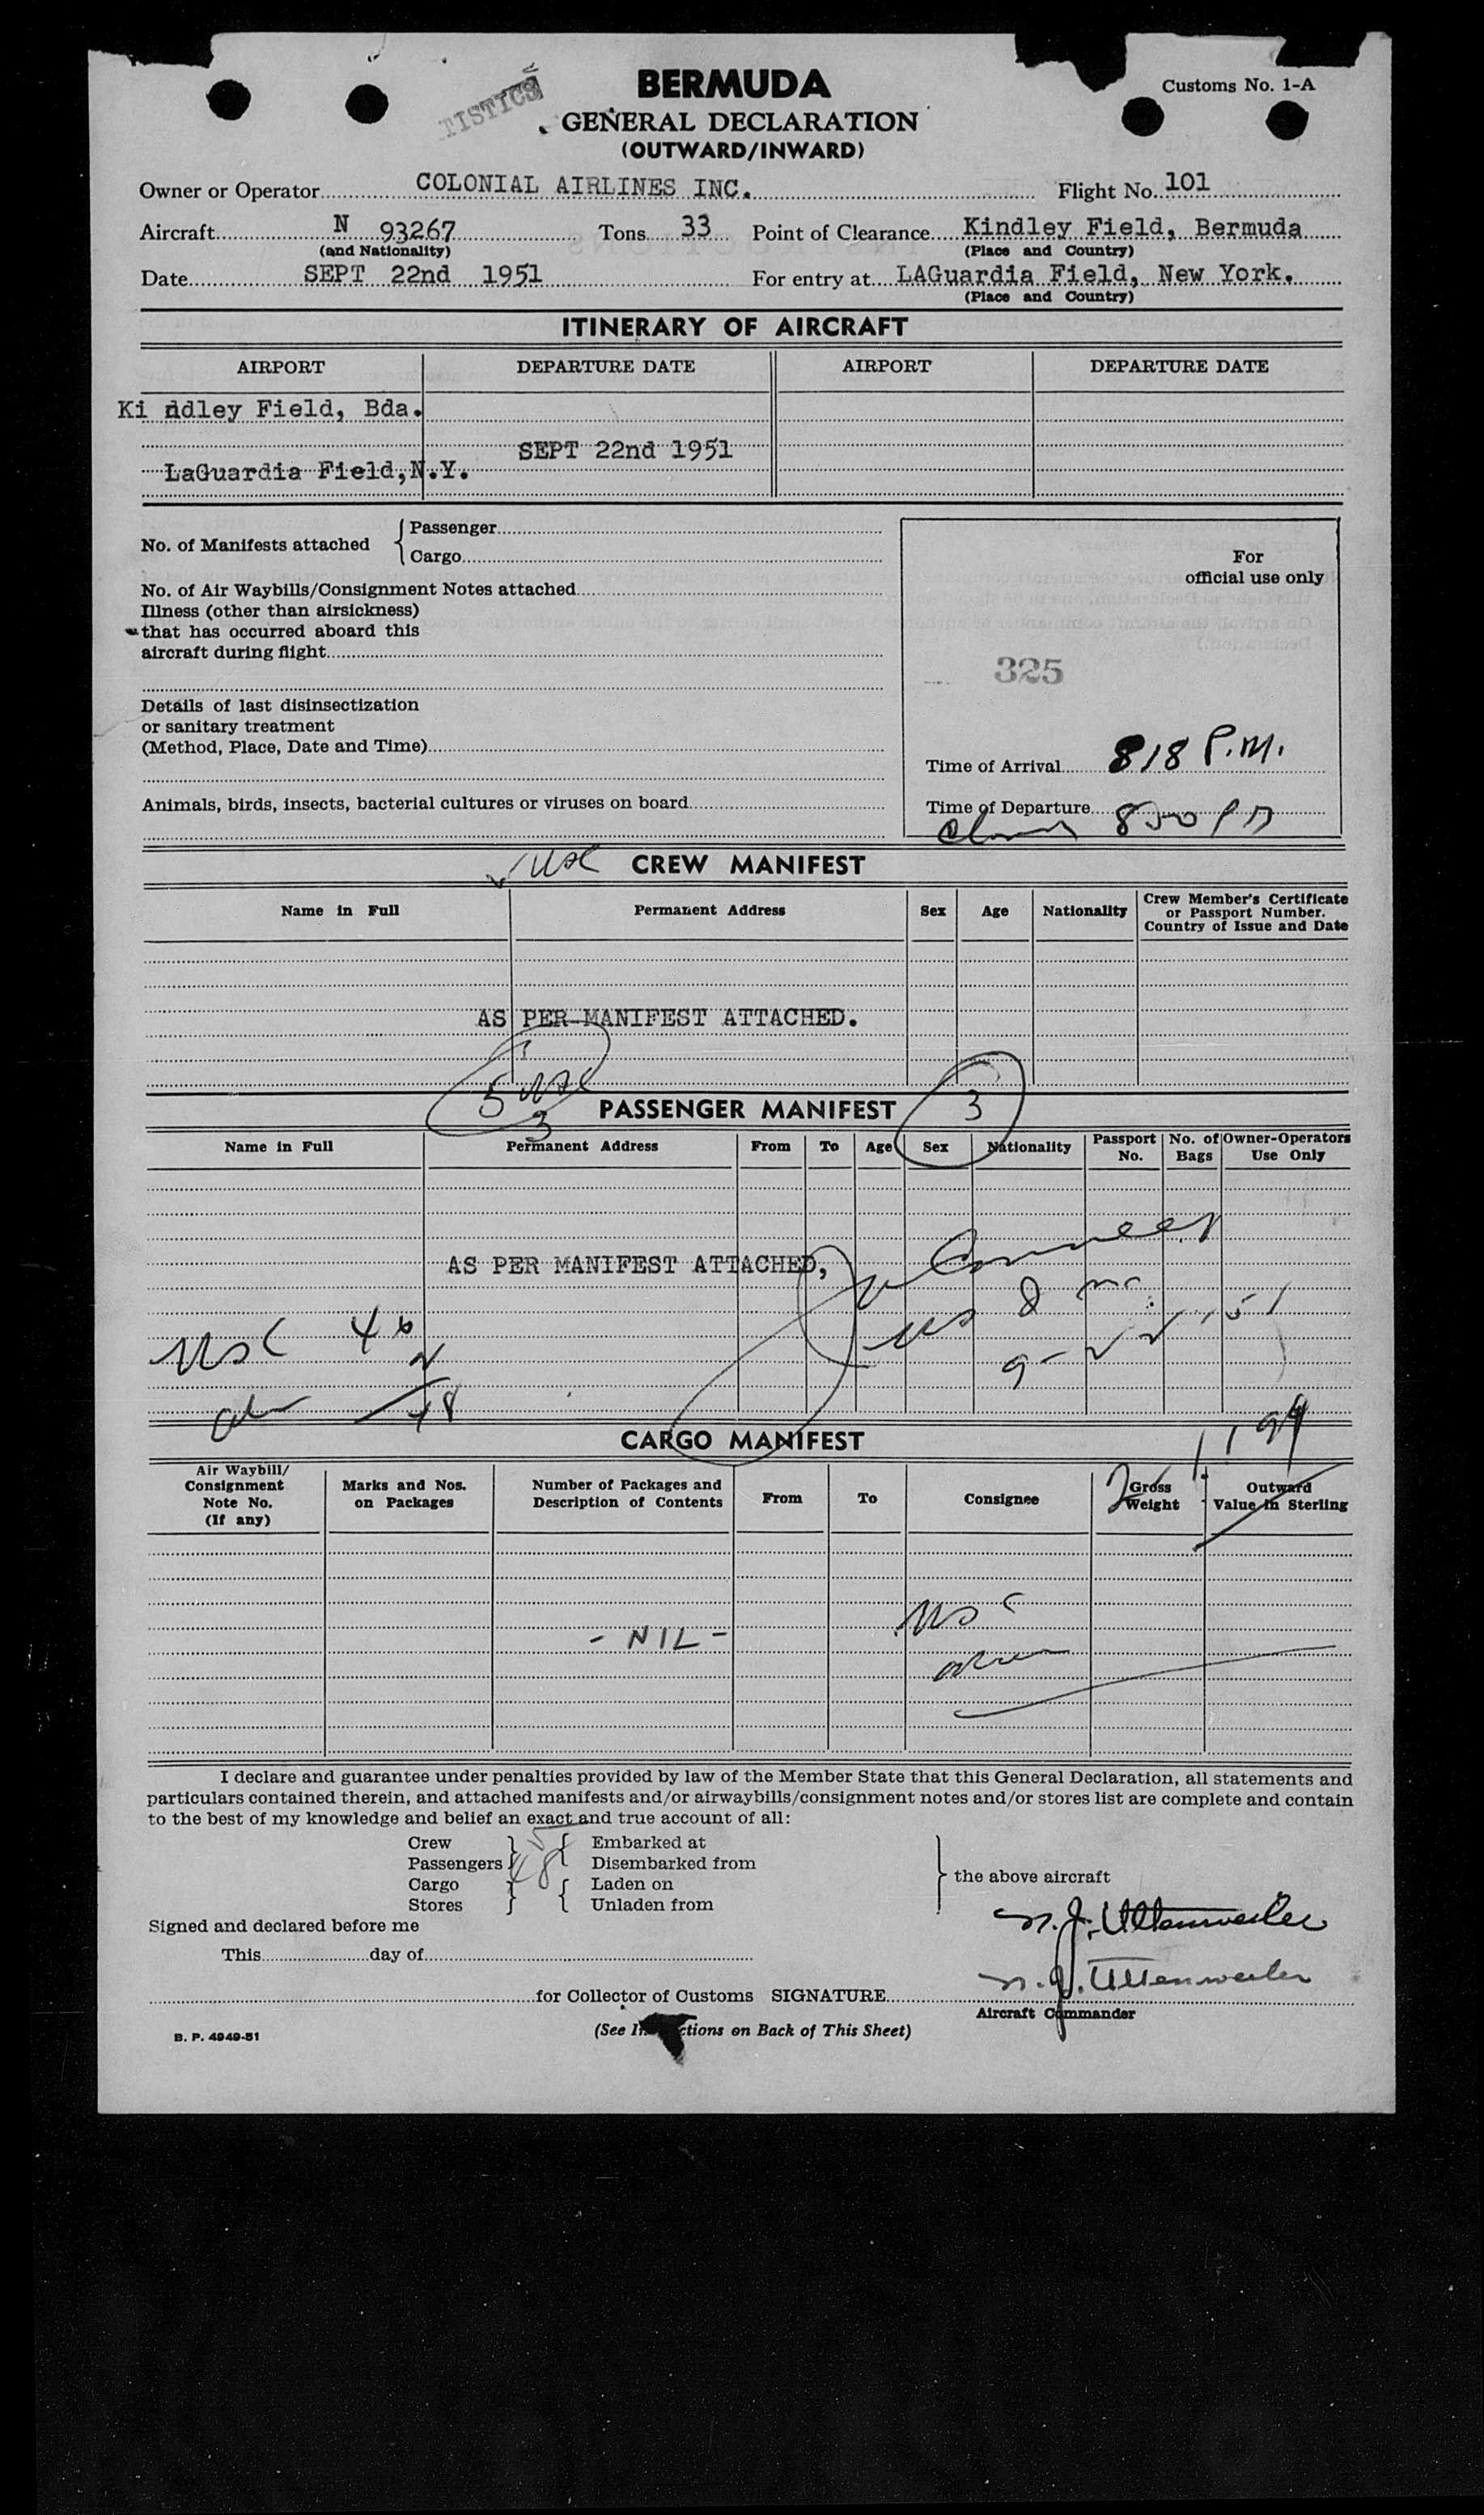 TISTICS
BERMUDA
Customs No. 1-A
GENERAL DECLARATION
(OUTWARD/INWARD)
Owner or Operator COLONIAL AIRLINES INC. Flight No. 101
Aircraft N 93267 Tons 33 Point of Clearance Kindley Field, Bermuda
(and Nationality) (Place and Country)
Date SEPT 22nd 1951 For entry at LAGuardia Field, New York.
(Place and Country)
ITINERARY OF AIRCRAFT
AIRPORT DEPARTURE DATE AIRPORT DEPARTURE DATE
Ki ndley Field, Bda.
SEPT 22nd 1951
LaGuardia Field,N.Y.
No. of Manifests attached { Passenger
Cargo
For
official use only
No. of Air Waybills/Consignment Notes attached
Illness (other than airsickness)
that has occurred aboard this
aircraft during flight
325
Details of last disinsectization
or sanitary treatment
(Method, Place, Date and Time)
Time of Arrival 818 P.M.
Animals, birds, insects, bacterial cultures or viruses on board
Time of Departure 850 PM
USC CREW MANIFEST
Name in Full Permanent Address Sex Age Nationality Crew Member's Certificate
or Passport Number.
Country of Issue and Date
AS PER MANIFEST ATTACHED.
5 USC 3
3
PASSENGER MANIFEST
Name in Full Permanent Address From To Age Sex Nationality Passport No. No. of Bags Owner-Operators Use Only
AS PER MANIFEST ATTACHED,
USC 46
2
9-22-51
48
CARGO MANIFEST
Air Waybill/
Consignment
Note No.
(If any)
Marks and Nos.
on Packages
Number of Packages and
Description of Contents
From To Consignee Gross
Weight
Outward
Value in Sterling
- NIL -
USC
I declare and guarantee under penalties provided by law of the Member State that this General Declaration, all statements and
particulars contained therein, and attached manifests and/or airwaybills/consignment notes and/or stores list are complete and contain
to the best of my knowledge and belief an exact and true account of all:
Crew } 5 { Embarked at
Passengers } 48 { Disembarked from
Cargo } { Laden on } the above aircraft
Stores } { Unladen from
N. J. Uttenweiler
Signed and declared before me
This day of
N. J. Uttenweiler
for Collector of Customs SIGNATURE
Aircraft Commander
B. P. 4949-51
(See In ctions on Back of This Sheet)